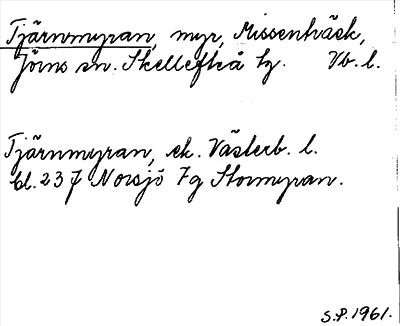 Tjärnmyran, myr, Missenträsk,
Jörns sn. Skellefteå tg. Vb. l.
Tjärnmyran, ek. Västerb. l.
bl. 237 Norsjö 7g Stormyran.
S.P. 1961.